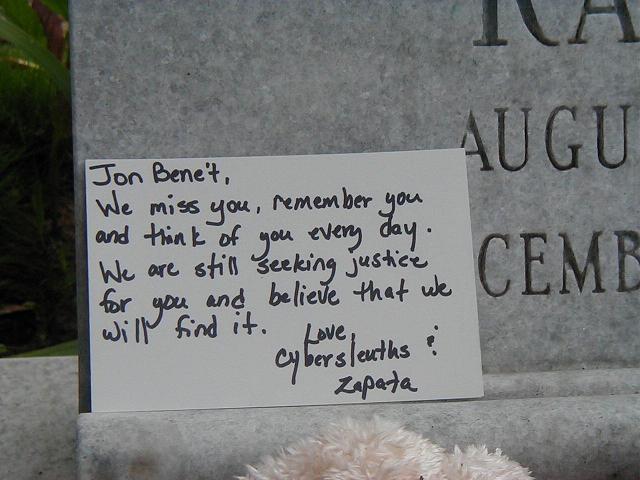 RA
AUGU
CEMB
Jon Bene't,
We miss you, remember you
and think of you every day.
We are still seeking justice
for you and believe that we
will find it.
Love,
Cybersleuths &
Zapata